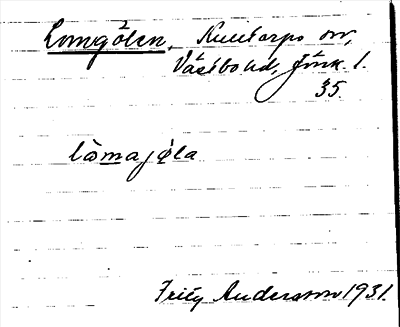 Lomgölen, Kulltorps sn,
Västbo hd, Jönk. l.
35.
lòmajø̀la
Fritz Andersson 1931.